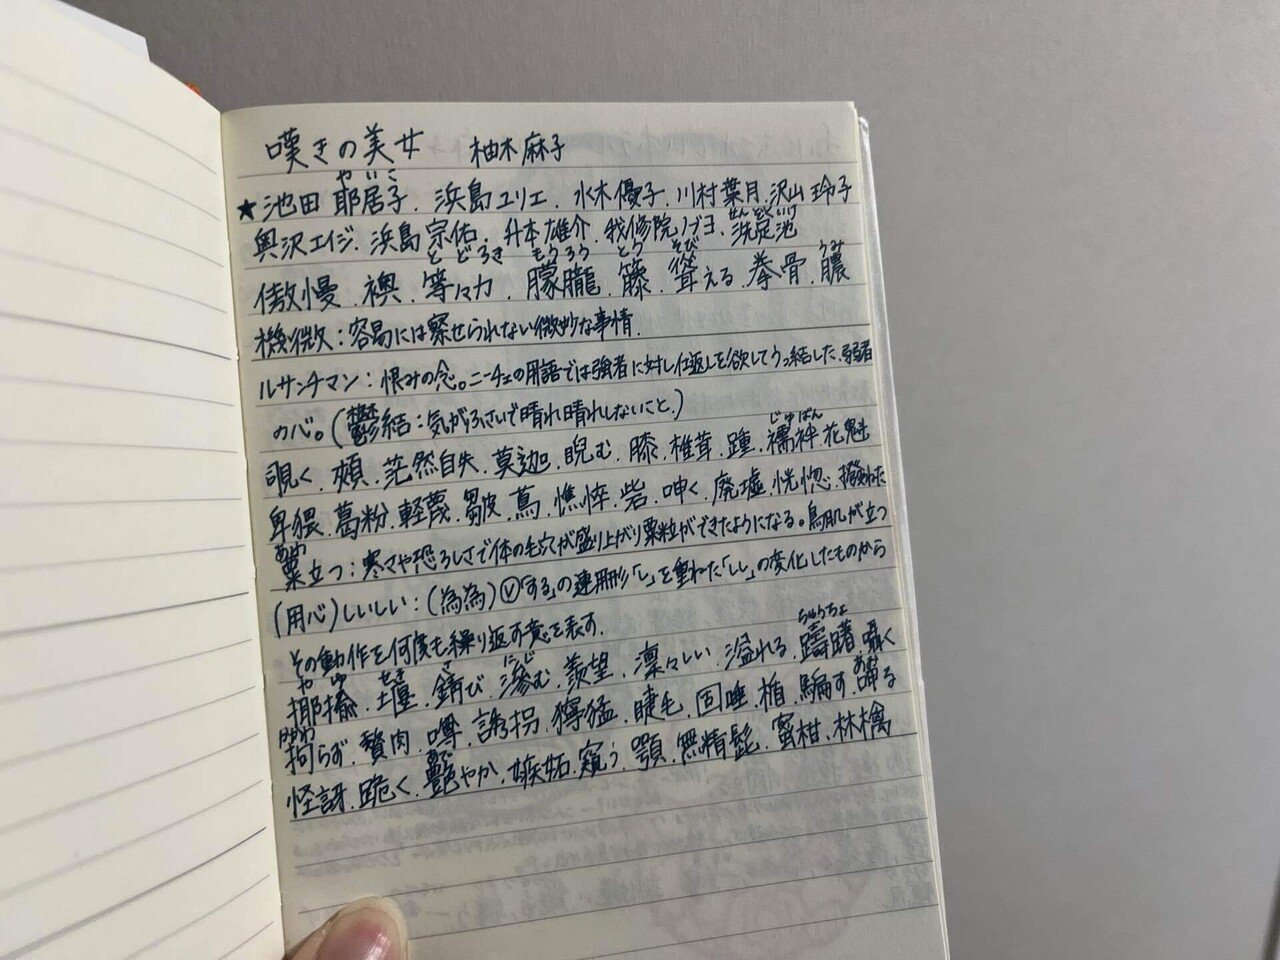 嘆きの美女 柚木麻子
★池田 耶居子、浜島ユリエ、水木優子、川村葉月、沢山玲子
やいこ
奥沢エイジ、浜島宗佑、升本雄介、我修院ノゲヨ、洗足池
せんぞくいけ
傲慢、襖、等々力、朦朧、籐、聳える、拳骨、膿
とどろき もうろう とう そび うみ
機微:容易には察せられない微妙な事情。
ルサンチマン:恨みの念。ニーチェの用語では強者に対し仕返しを欲してうっ結した、弱者
の心。(鬱結:気がふさいで晴れ晴れしないこと。)
覗く、頬、茫然自失、莫迦、睨む、膝、椎茸、踵、襦袢、花魁
じゅばん
卑猥、葛粉、軽蔑、皺、蔦、憔悴、砦、呻く、廃墟、恍惚、撥ねた
粟立つ:寒さや恐ろしさで体の毛穴が盛り上がり粟粒ができたようになる。鳥肌が立つ
あわ
(用心)しいしい:(為為)Ⓥ「する」の連用形「し」を重ねた「しし」の変化したものから
その動作を何度も繰り返す意を表す。
揶揄、堰、錆び、滲む、羨望、凛々しい、溢れる、躊躇、囁く
やゆ せき さ にじ ちゅうちょ
拘らず、贅肉、噂、誘拐、獰猛、睫毛、固唾、楯、騙す、嘲る
かかわ あざけ
怪訝、跪く、艶やか、嫉妬、窺う、顎、無精髭、蜜柑、林檎
あで